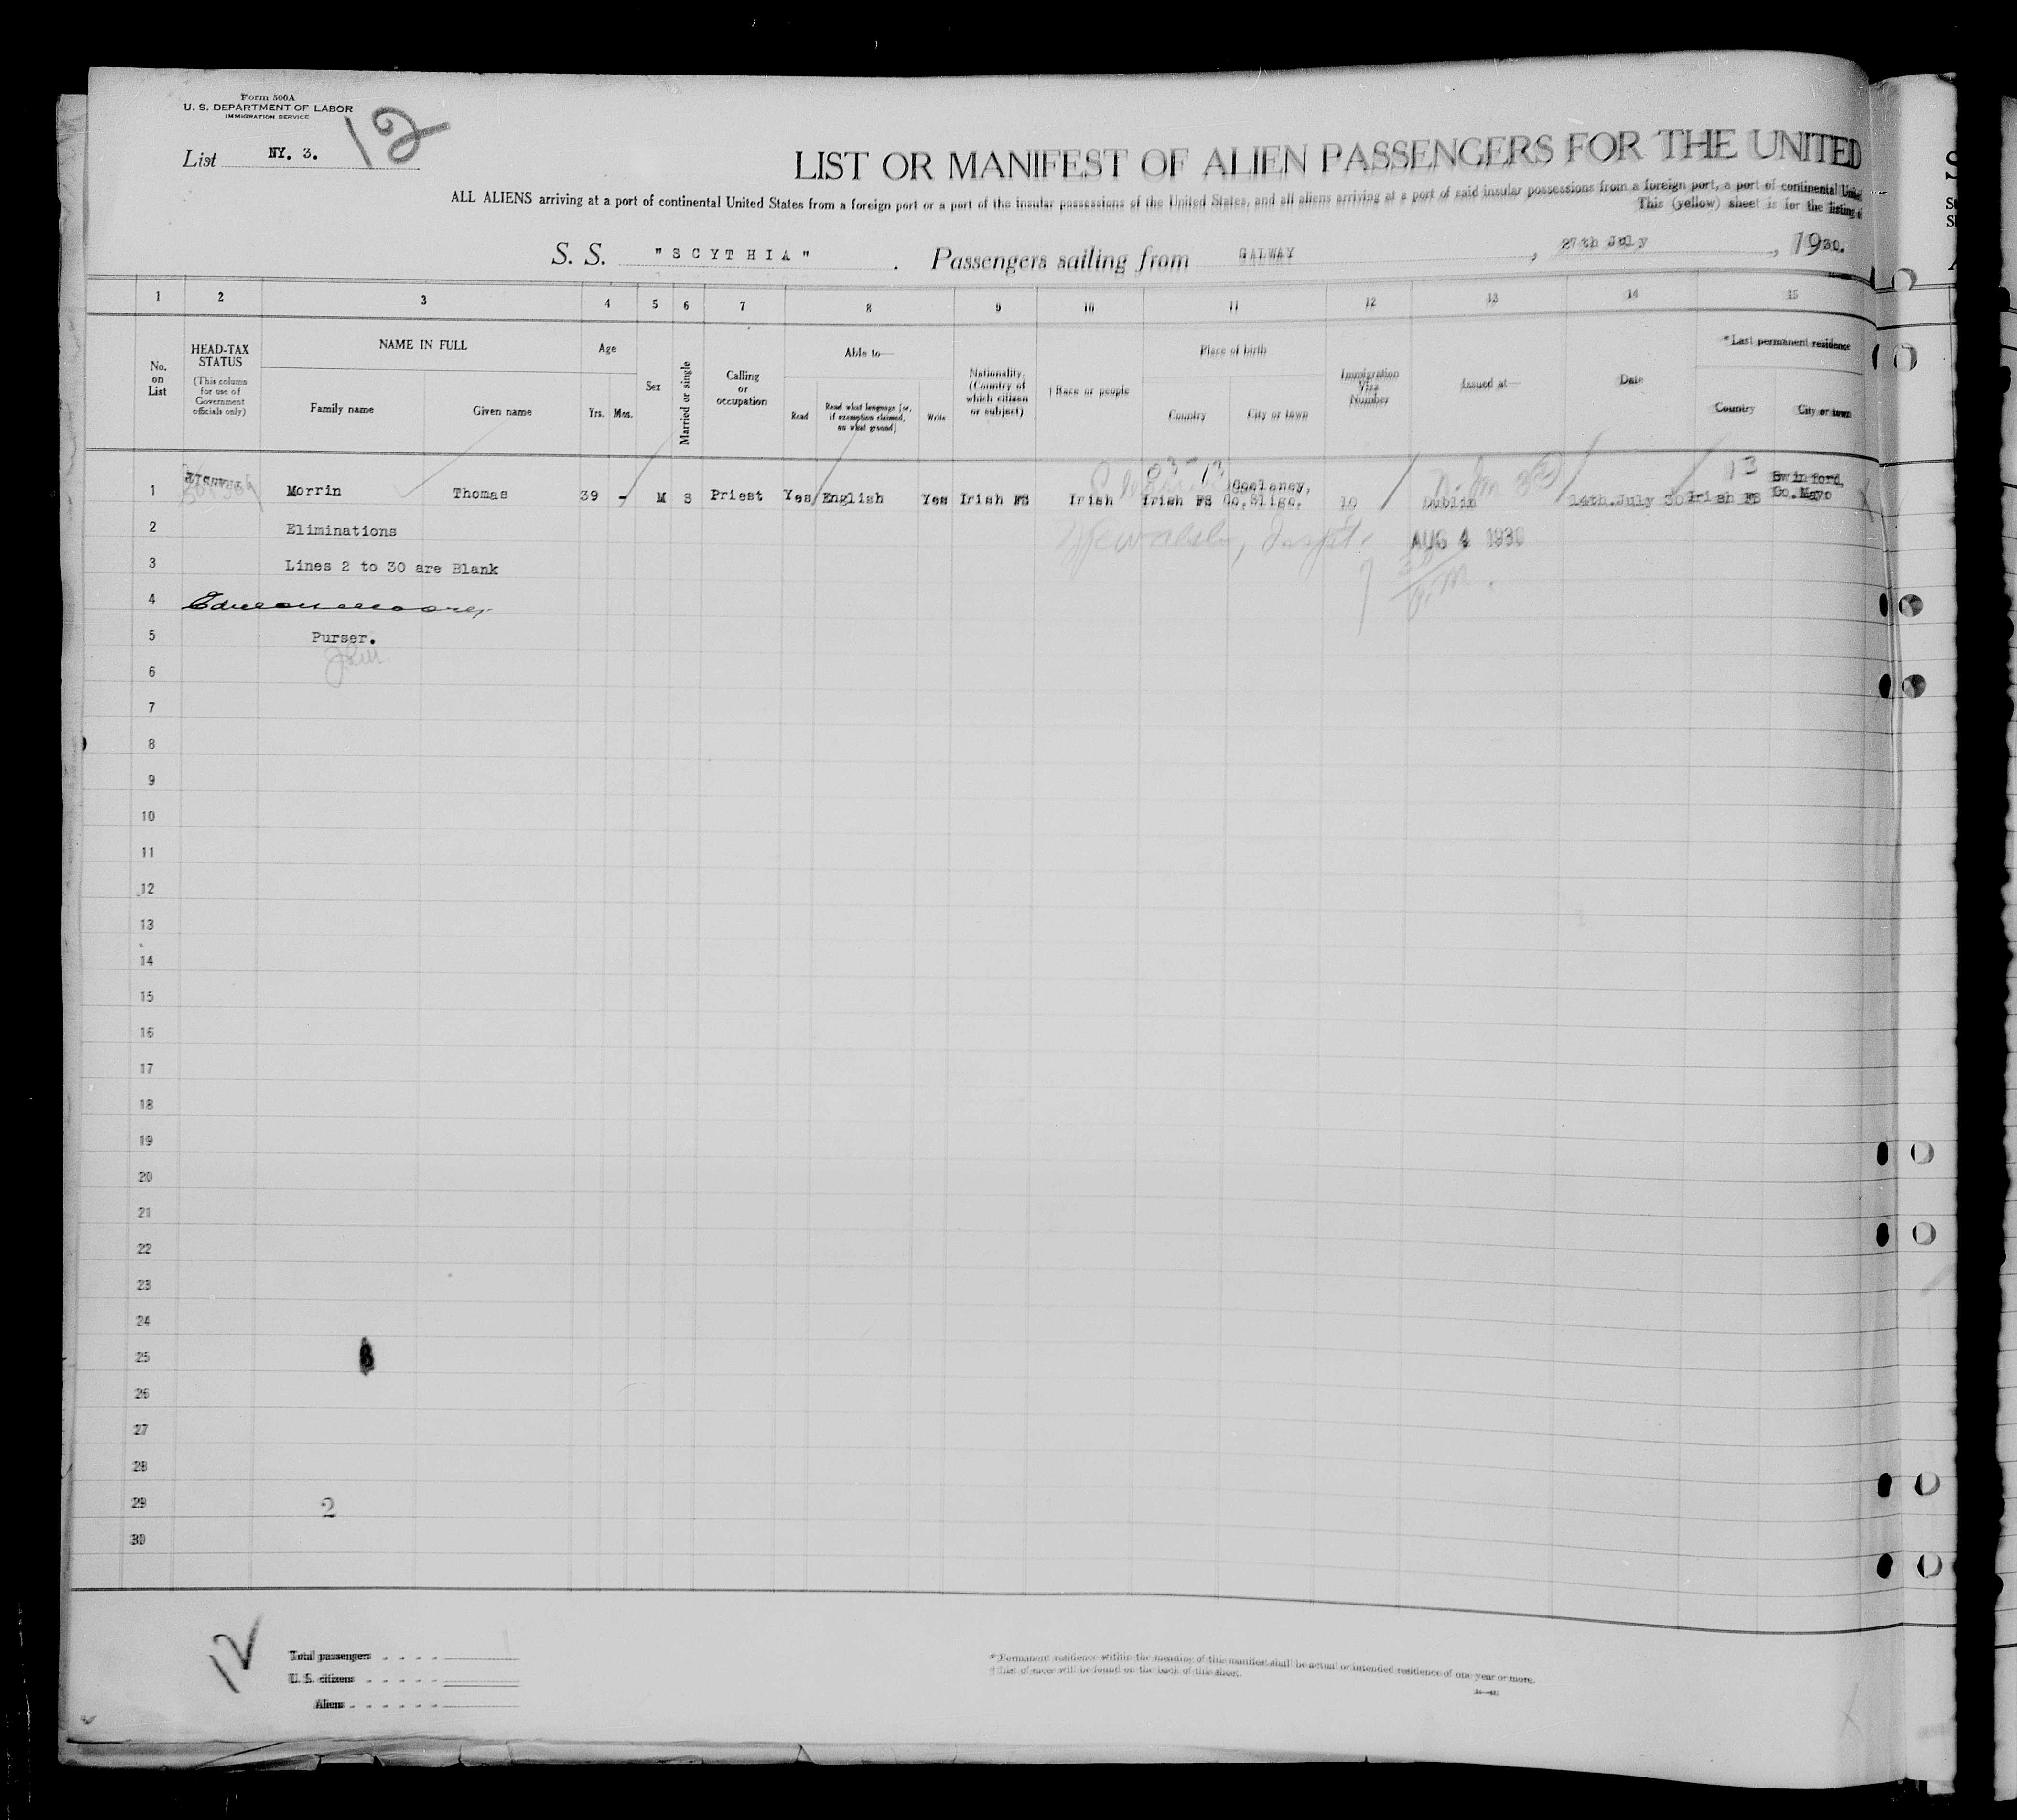 Form 500A
U. S. DEPARTMENT OF LABOR
IMMIGRATION SERVICE
12
List NY. 3.
LIST OR MANIFEST OF ALIEN PASSENGERS FOR THE UNITED
ALL ALIENS arriving at a port of continental United States from a foreign port or a port of the insular possessions of the United States, and all aliens arriving at a port of said insular possessions from a foreign port, a port of continental
This (yellow) sheet is for the listing
S. S. "SCYTHIA" . Passengers sailing from GALWAY, 27th July, 1930.
1 2 3 4 5 6 7 8 9 10 11 12 13 14 15
No. on List
HEAD-TAX STATUS
(This column for use of Government officials only)
NAME IN FULL
Family name Given name
Age
Yrs. Mos.
Sex
Married or single
Calling or occupation
Able to—
Read
Read what language [or, if exemption claimed, on what ground]
Write
Nationality. (Country of which citizen or subject)
†Race or people
Place of birth
Country City or town
Immigration Visa Number
Issued at—
Date
*Last permanent residence
Country City or town
1 Morrin Thomas 39 - M S Priest Yes English Yes Irish FS Irish Irish FS Coolaney, Co. Sligo. 10 Dublin 14th.July 30 Irish FS Swinford, Co. Mayo
13
2 Eliminations
AUG 4 1930
3 Lines 2 to 30 are Blank
4
5 Purser.
6
7
8
9
10
11
12
13
14
15
16
17
18
19
20
21
22
23
24
25
26
27
28
29 2
30
12
Total passengers
U. S. citizens
Aliens
*Permanent residence within the meaning of this manifest shall be actual or intended residence of one year or more.
†List of races will be found on the back of this sheet.